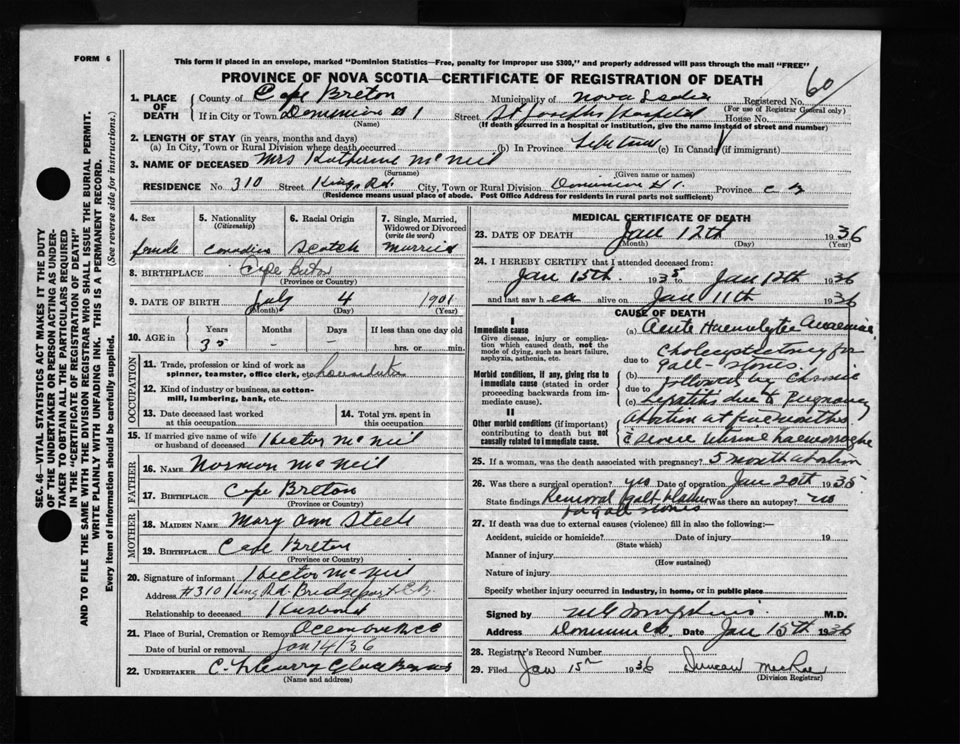 FORM 6
This form if placed in an envelope, marked "Dominion Statistics—Free, penalty for improper use $300," and properly addressed will pass through the mail "FREE"
PROVINCE OF NOVA SCOTIA—CERTIFICATE OF REGISTRATION OF DEATH
60
1. PLACE OF DEATH
County of Cape Breton Municipality of Nova Scotia Registered No.
(For use of Registrar General only)
If in City or Town Dominion #1 Street St Josephs Hospital House No.
(Name) (If death occurred in a hospital or institution, give the name instead of street and number)
2. LENGTH OF STAY (in years, months and days)
(a) In City, Town or Rural Division where death occurred (b) In Province Life time (c) In Canada (if immigrant)
3. NAME OF DECEASED Mrs Katherine McNeil
(Surname) (Given name or names)
RESIDENCE No. 310 Street King Rd. City, Town or Rural Division Dominion #1. Province C B
(Residence means usual place of abode. Post Office Address for residents in rural parts not sufficient)
4. Sex
female
5. Nationality
(Citizenship)
Canadian
6. Racial Origin
Scotch
7. Single, Married, Widowed or Divorced
(write the word)
Married
8. BIRTHPLACE Cape Breton
(Province or Country)
9. DATE OF BIRTH July 4 1901
(Month) (Day) (Year)
10. AGE in Years Months Days If less than one day old
35 - - hrs. or min.
OCCUPATION
11. Trade, profession or kind of work as spinner, teamster, office clerk, etc.
12. Kind of industry or business, as cotton-mill, lumbering, bank, etc.
13. Date deceased last worked at this occupation
14. Total yrs. spent in this occupation
15. If married give name of wife or husband of deceased Hector McNeil
FATHER
16. NAME Norman McNeil
17. BIRTHPLACE Cape Breton
(Province or Country)
MOTHER
18. MAIDEN NAME Mary Ann Steele
19. BIRTHPLACE Cape Breton
(Province or Country)
20. Signature of informant Hector McNeil
Address #310 King Rd. Bridgeport C.B.
Relationship to deceased Husband
21. Place of Burial, Cremation or Removal
Date of burial or removal Jan 14/36
22. UNDERTAKER C. Henry
(Name and address)
MEDICAL CERTIFICATE OF DEATH
23. DATE OF DEATH Jan 12th 1936
(Month) (Day) (Year)
24. I HEREBY CERTIFY that I attended deceased from:
Jan 15th. 1935 to Jan 12th 1936
and last saw her alive on Jan 11th 1936
CAUSE OF DEATH
I
Immediate cause
Give disease, injury or complication which caused death, not the mode of dying, such as heart failure, asphyxia, asthenia, etc.
(a) Acute Haemolytic Anaemia
due to Cholecystectomy for
Morbid conditions, if any, giving rise to immediate cause (stated in order proceeding backwards from immediate cause).
(b) Gall-stones.
due to followed by Chronic
(c) Hepatitis due to Pregnancy
II
Other morbid conditions (if important) contributing to death but not causally related to immediate cause.
abortion at five months
c severe uterine haemorrhage
25. If a woman, was the death associated with pregnancy? 5 month abortion
26. Was there a surgical operation? yes Date of operation Jan 20th 1935
State findings Removal gall bladder Was there an autopsy? no
for gall stones
27. If death was due to external causes (violence) fill in also the following:—
Accident, suicide or homicide? Date of injury 19
(State which)
Manner of injury
(How sustained)
Nature of injury
Specify whether injury occurred in industry, in home, or in public place
Signed by M.D.
Address Dominion C.B. Date Jan 15th 1936
28. Registrar's Record Number
29. Filed Jan 15th 1936 Duncan MacRae
(Division Registrar)
SEC. 46—VITAL STATISTICS ACT MAKES IT THE DUTY
OF THE UNDERTAKER OR PERSON ACTING AS UNDER-
TAKER TO OBTAIN ALL THE PARTICULARS REQUIRED
IN THE "CERTIFICATE OF REGISTRATION OF DEATH"
AND TO FILE THE SAME WITH THE DIVISION REGISTRAR WHO SHALL ISSUE THE BURIAL PERMIT.
WRITE PLAINLY WITH UNFADING INK. THIS IS A PERMANENT RECORD.
Every item of information should be carefully supplied. (See reverse side for instructions.)